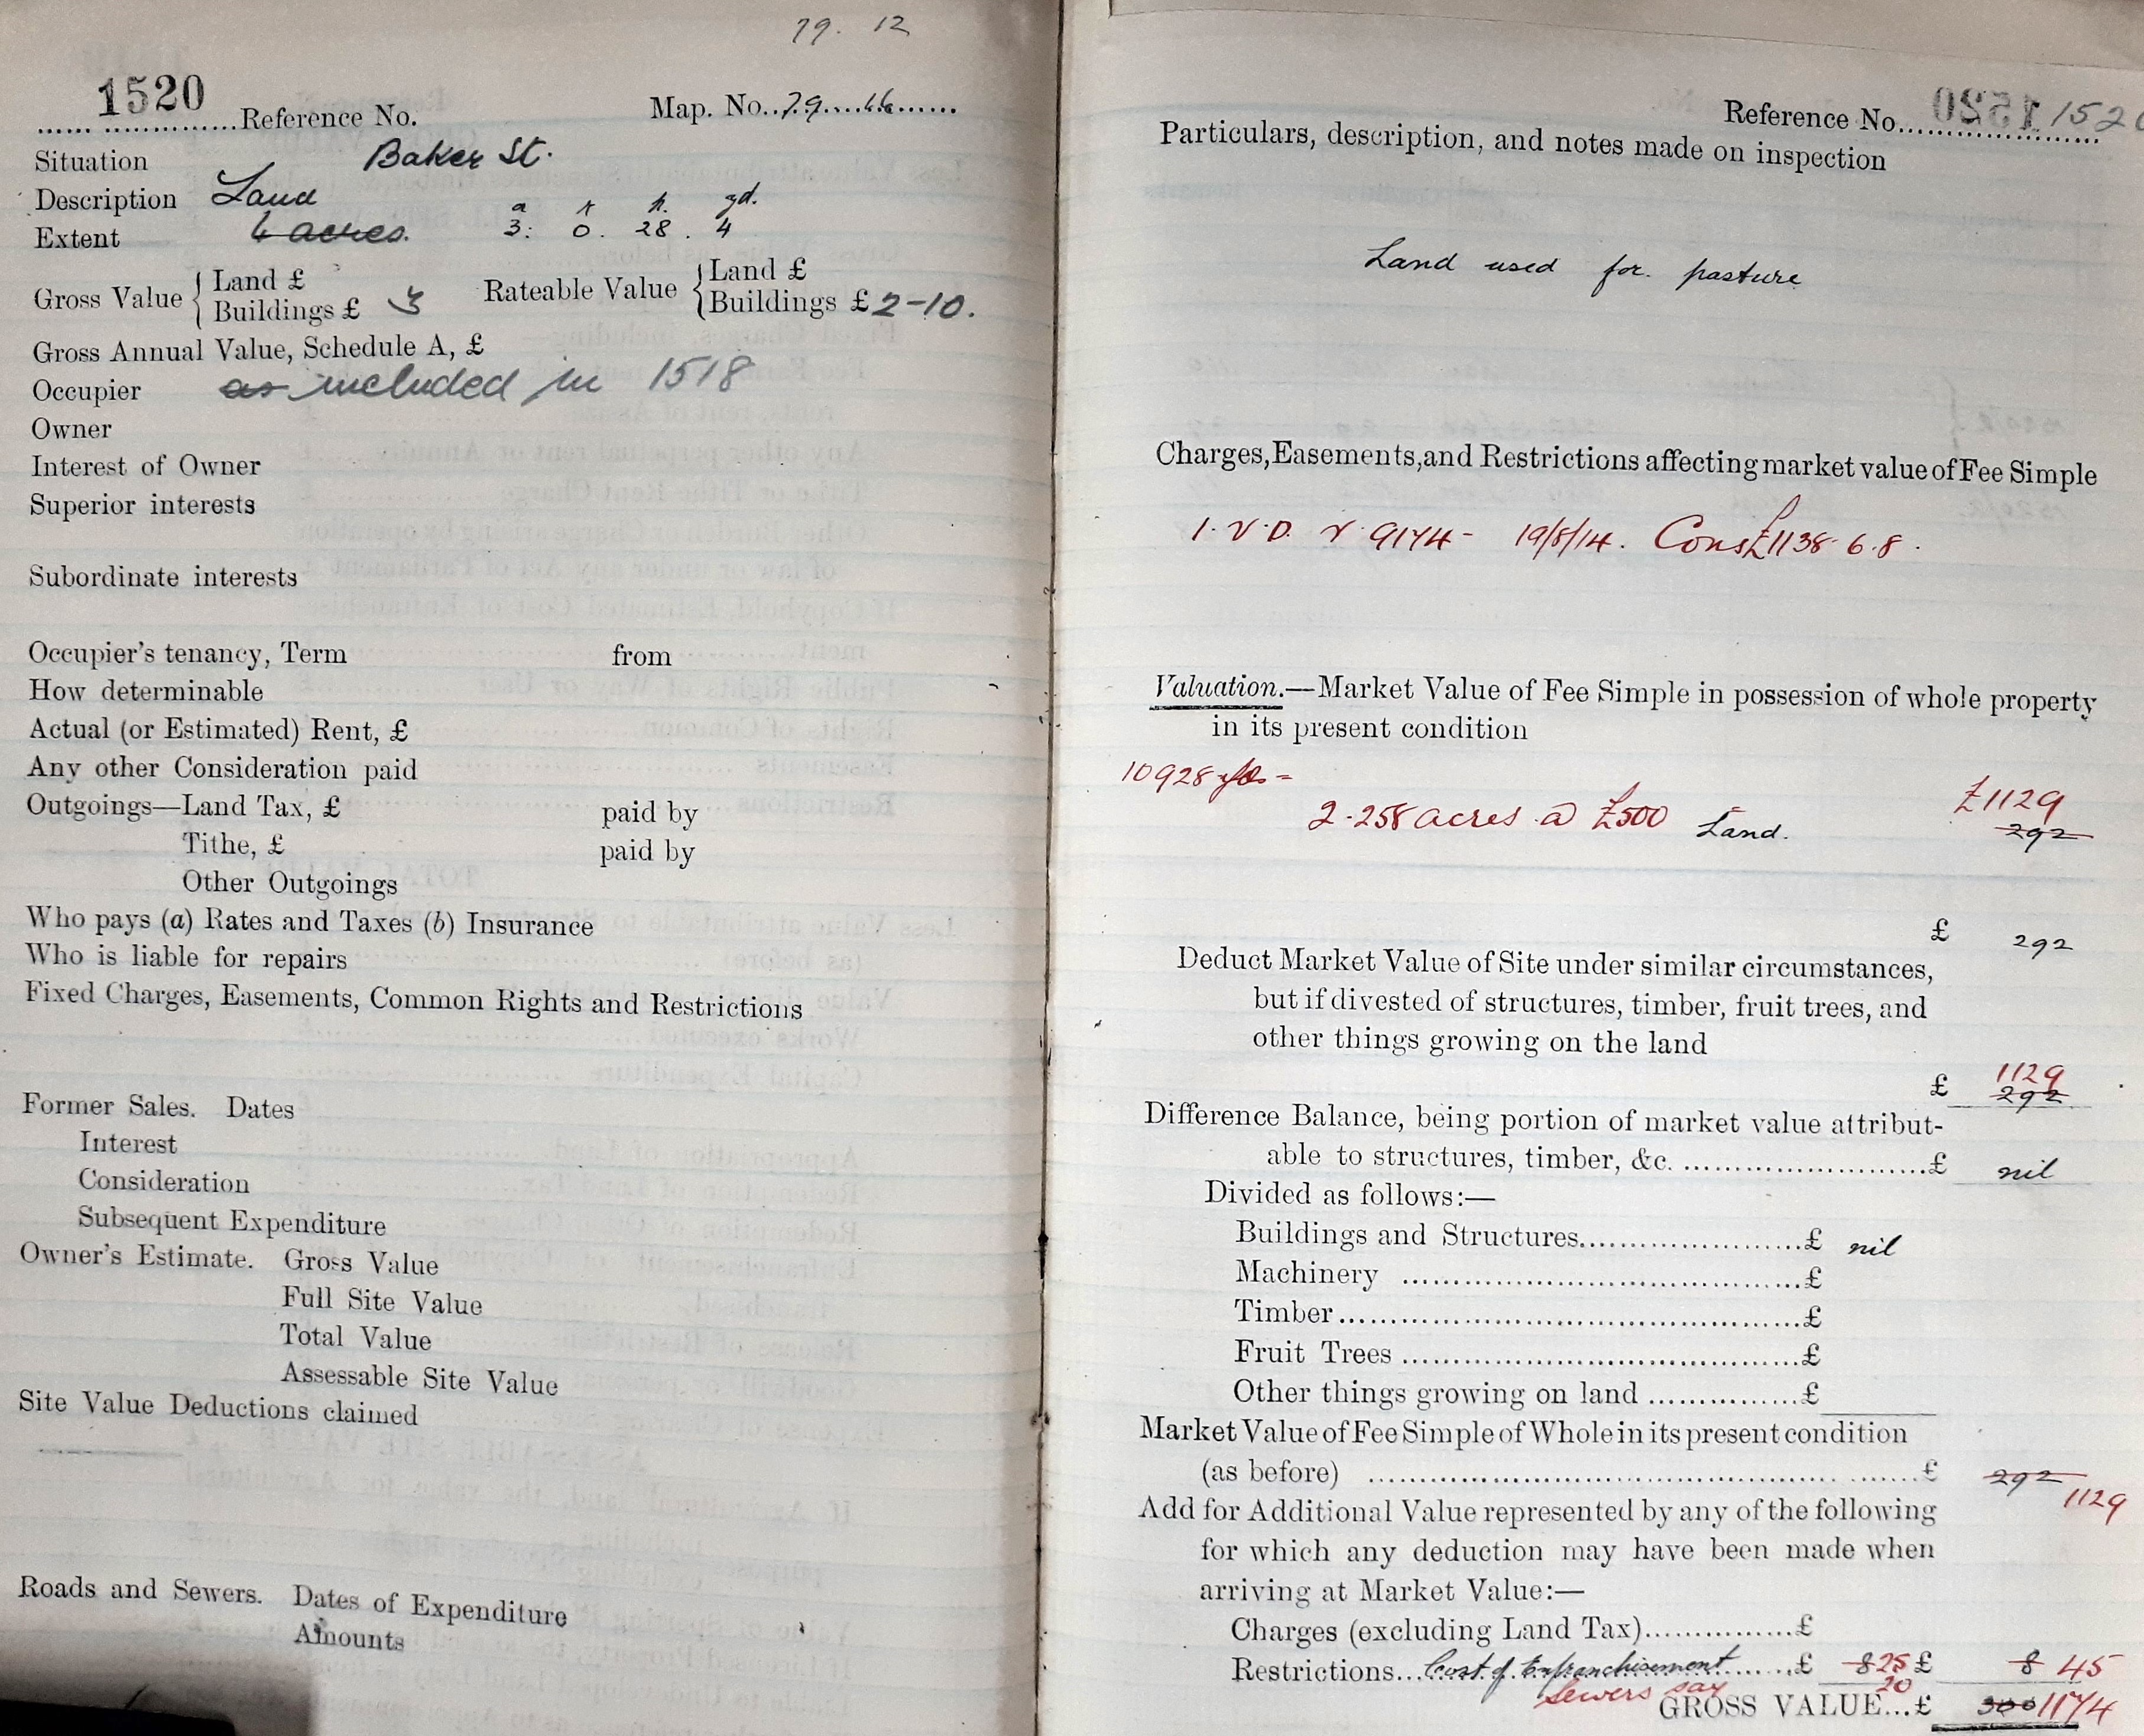 79. 12
1520
Reference No. Map. No. 79
Situation Baker St.
Description Land
a r p. yd.
Extent 4 acres. 3: 0. 28. 4
Gross Value { Land £ Rateable Value { Land £
Buildings £ 3 Buildings £ 2-10.
Gross Annual Value, Schedule A, £
Occupier as included in 1518
Owner
Interest of Owner
Superior interests
Subordinate interests
Occupier's tenancy, Term from
How determinable
Actual (or Estimated) Rent, £
Any other Consideration paid
Outgoings—Land Tax, £ paid by
Tithe, £ paid by
Other Outgoings
Who pays (a) Rates and Taxes (b) Insurance
Who is liable for repairs
Fixed Charges, Easements, Common Rights and Restrictions
Former Sales. Dates
Interest
Consideration
Subsequent Expenditure
Owner's Estimate. Gross Value
Full Site Value
Total Value
Assessable Site Value
Site Value Deductions claimed
Roads and Sewers. Dates of Expenditure
Amounts
Reference No. 1520
Particulars, description, and notes made on inspection
Land used for pasture
Charges, Easements, and Restrictions affecting market value of Fee Simple
I.V.D. 9174 - 19/8/14. Cons £1138 6.8.
Valuation.—Market Value of Fee Simple in possession of whole property
in its present condition
10928 yds =
2.258 acres @ £500 Land. £1129
292
£ 292
Deduct Market Value of Site under similar circumstances,
but if divested of structures, timber, fruit trees, and
other things growing on the land
£ 1129
292
Difference Balance, being portion of market value attribut-
able to structures, timber, &c. £ nil
Divided as follows:—
Buildings and Structures £ nil
Machinery £
Timber £
Fruit Trees £
Other things growing on land £
Market Value of Fee Simple of Whole in its present condition
(as before) £ 292 1129
Add for Additional Value represented by any of the following
for which any deduction may have been made when
arriving at Market Value:—
Charges (excluding Land Tax) £
Restrictions Cost of Enfranchisement £ 8 25 £ 8 45
Sewers say 20
GROSS VALUE...£ 300 1174